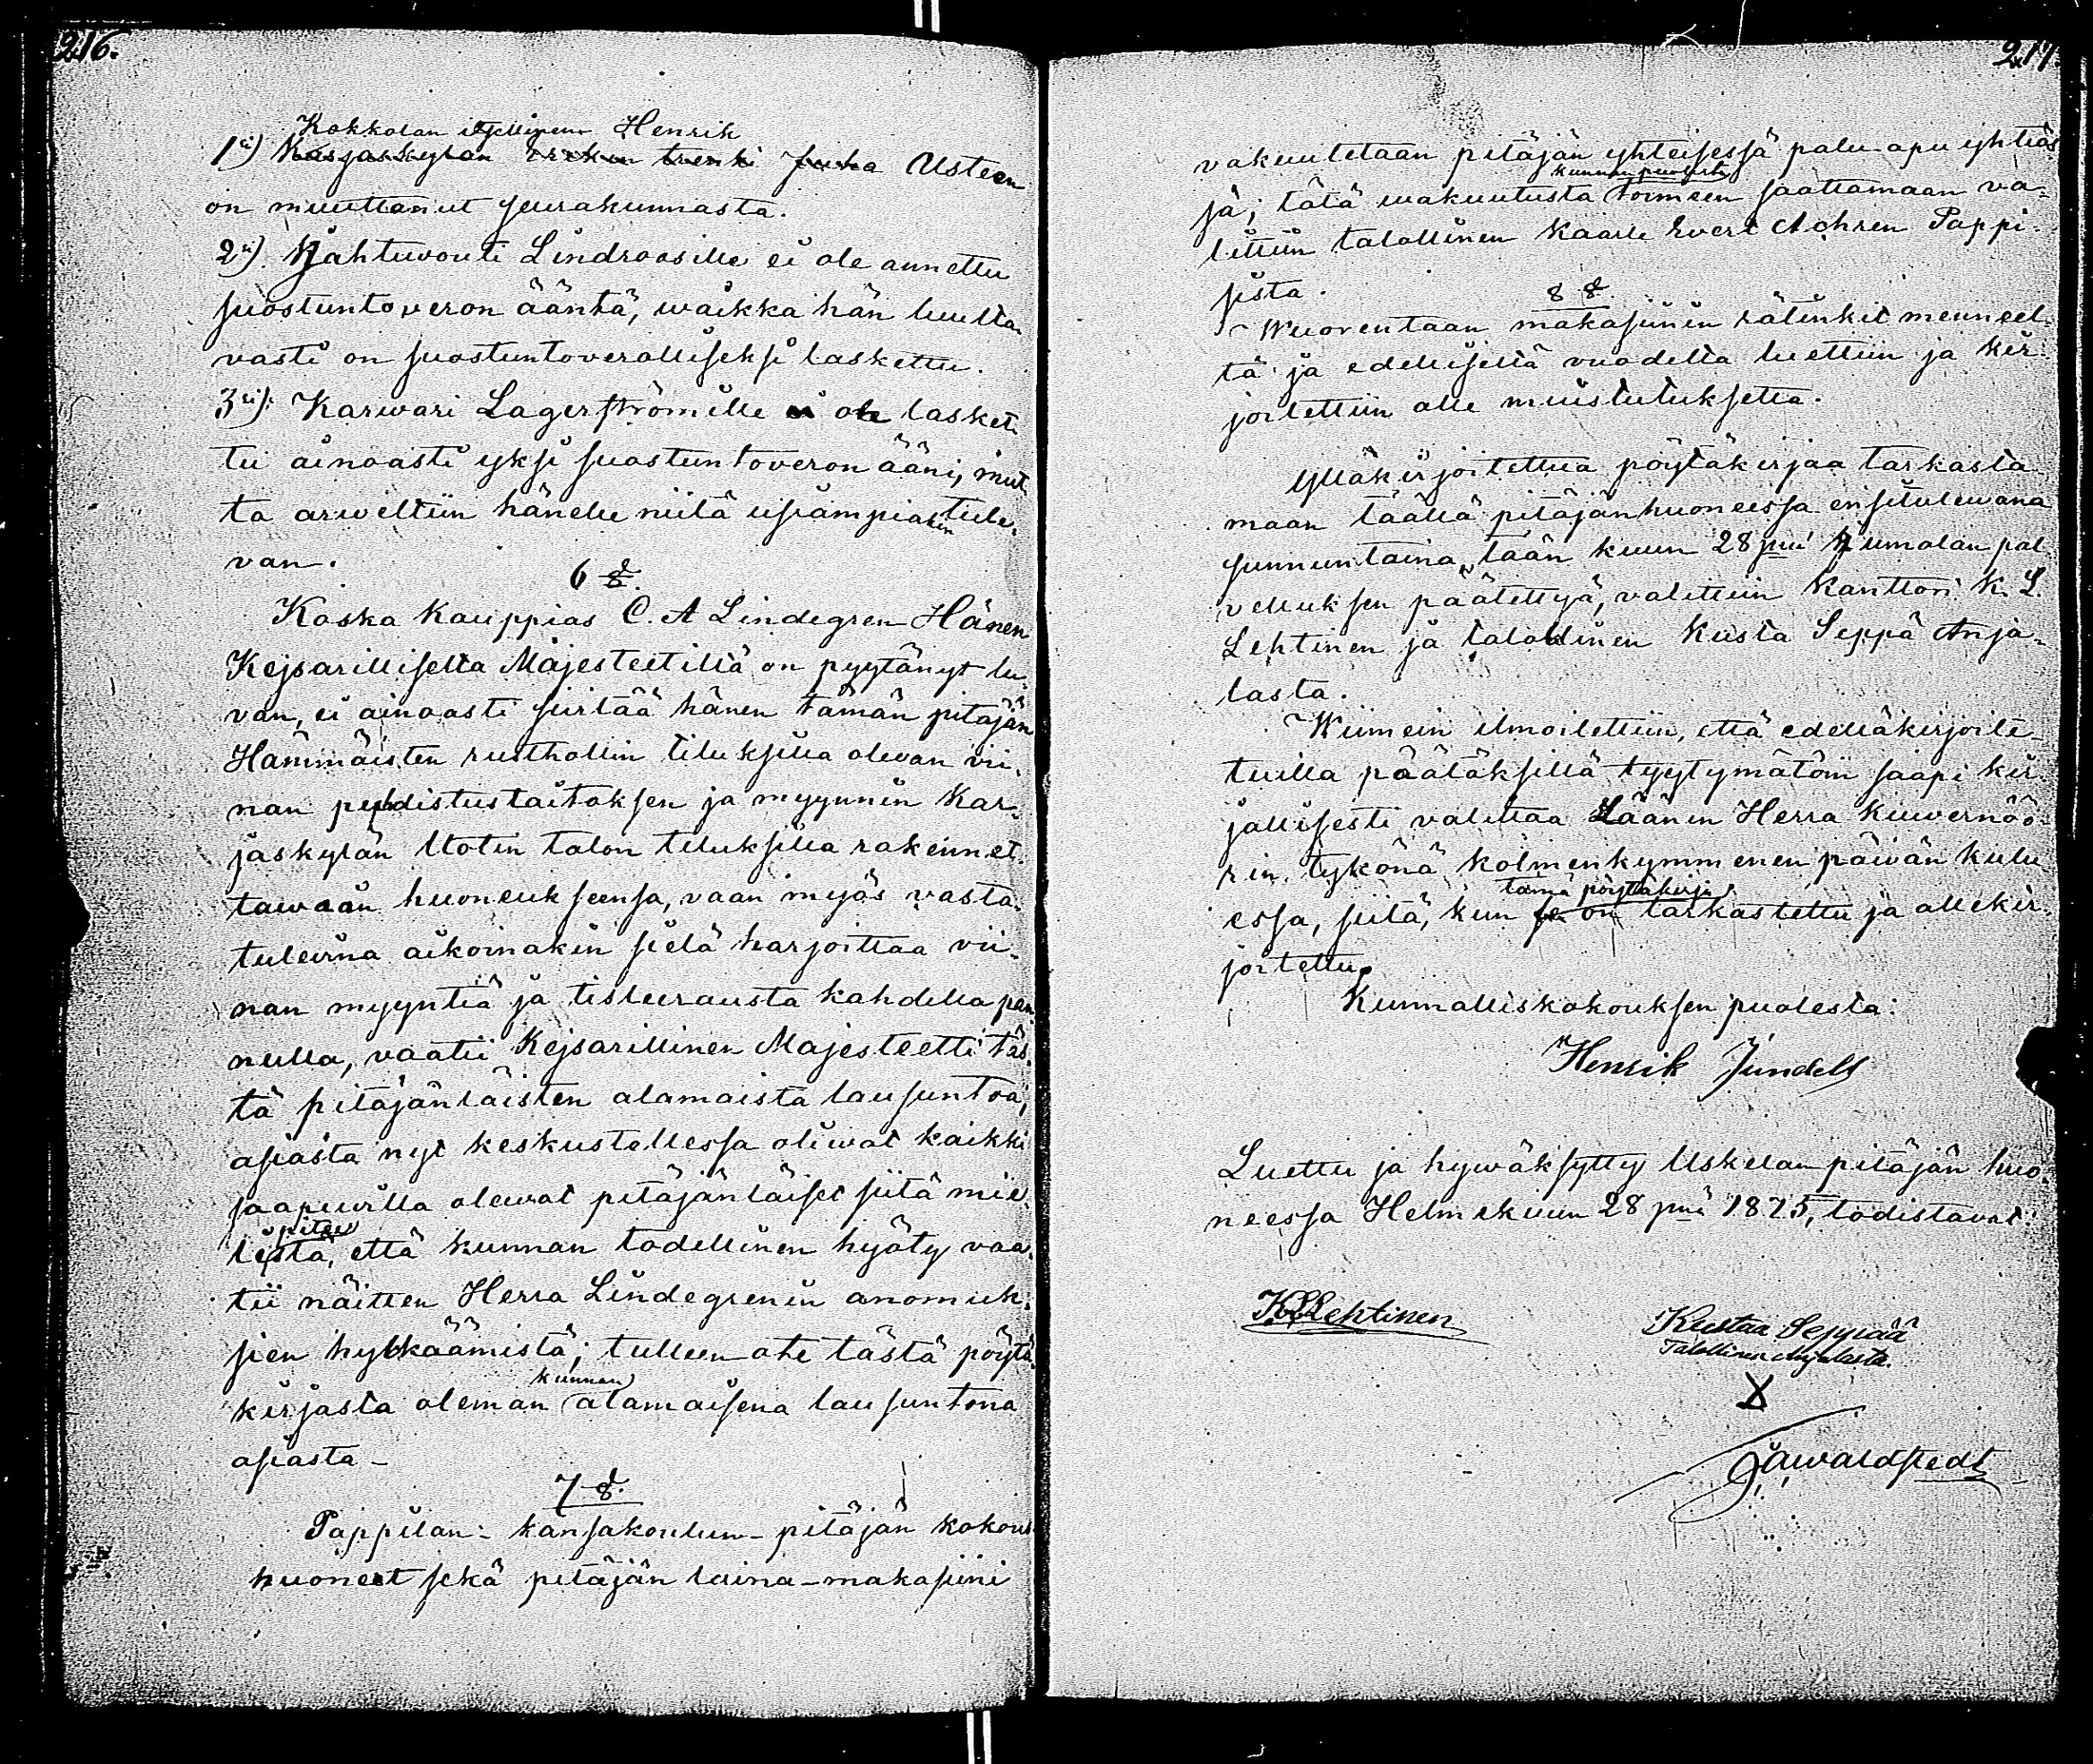 216.
Kokkolan itsellinen Henrik
1ksi) Karjaskylän Erikin trenki Juha Usteen
on muuttanut seurakunnasta.
2si). Njahtuvouti Lindroosille ei ole annettu
suostuntoveron ääntä, waikka hän luulta-
vasti on suostuntoverolliseksi laskettu.
3si): Karwari Lagerströmille ei ole lasket-
tu ainoasti yksi suostuntoveron ääni, mut-
ta arweltiin hänelle niitä usiampiakin tule-
van.
6 §.
Koska kauppias C. A Lindegren Hänen
Kejsarilliselta Majesteetiltä on pyytänyt lu-
van, ei ainoasti siirtää hänen tämän pitäjän
Hämmäisten rusthollin tiluksilla olevan vii-
nan puhdistustaitoksen ja myynnin Kar-
jaskylän Utotin talon tiluksilla rakennet-
tawaan huoneukseensa, vaan myös vasta-
tulevina aikoinakin sielä harjoittaa vii-
nan myyntiä ja tisleerausta kahdella pan-
nulla, vaatii Kejsarillinen Majesteetti täs-
tä pitäjänläisten alamaista lausuntoa,
asiasta nyt keskustellessa oliwat kaikki
saapuvilla olewat pitäjänläiset siitä mie-
pitäen
lestä, että kunnan todellinen hyöty vaa-
tii näitten Herra Lindegrenin anomuk-
sien hylkäämistä; tulleen ote tästä pöytä-
kunnan
kirjasta oleman alamaisena lausuntona
asiasta -
7 §.
Pappilan- kansakoulun- pitäjän kokous
huoneet sekä pitäjän laina-makasiini
217.
vakuutetaan pitäjän yhteisessä palu-apu yhtiös-
kunnan puolesta
sä; tätä wakuutusta toimeen saattamaan va-
littiin talollinen Kaarle Evert Achren Pappi-
lista.
8 §.
Wuorentaan makasiinin rätinkit menneel-
tä ja edelliseltä vuodelta luettiin ja kir-
joitettiin alle muistutuksetta.
Ylläkirjoitettua pöytäkirjaa tarkasta-
maan täällä pitäjänhuoneessa ensitulewana
sunnuntaina, tään kuun 28 pnä Jumalan pal-
velluksen päätettyä, valittiin kanttori K. L.
Lehtinen ja talollinen Kusta Seppä Anja-
lasta.
Wiimein ilmoitettiin, että edelläkirjoite-
tuilla päätöksillä tyytymätöin saapi kir-
jallisesti valittaa Läänin Herra Kuvernöö-
rin tykönä kolmenkymmenen päivän kulu-
tämä pöytäkirja
essa, siitä, kun se on tarkastettu ja allekir-
joitettu.
Kunnalliskokouksen puolesta:
Henrik Jundell
Luettu ja hywäksytty Uskelan pitäjän huo-
neessa Helmikuun 28 pnä 1875, todistavat:
K L Lehtinen
Kustaa Seppää
Talollinen Anjalasta.
X